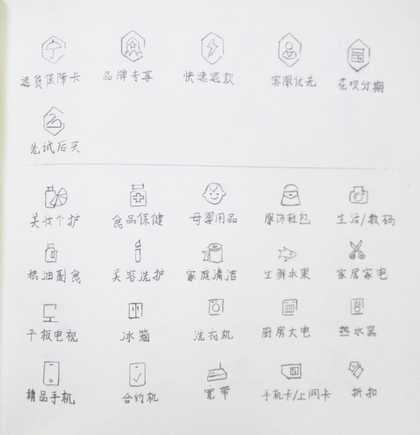 退货保障卡 品牌专享 快速退款 客服优先 花呗分期
先试后买
美妆个护 食品保健 母婴用品 服饰鞋包 生活/数码
粮油副食 美容洗护 家庭清洁 生鲜水果 家居家电
平板电视 冰箱 洗衣机 厨房大电 热水器
精品手机 合约机 宽带 手机卡/上网卡 折扣